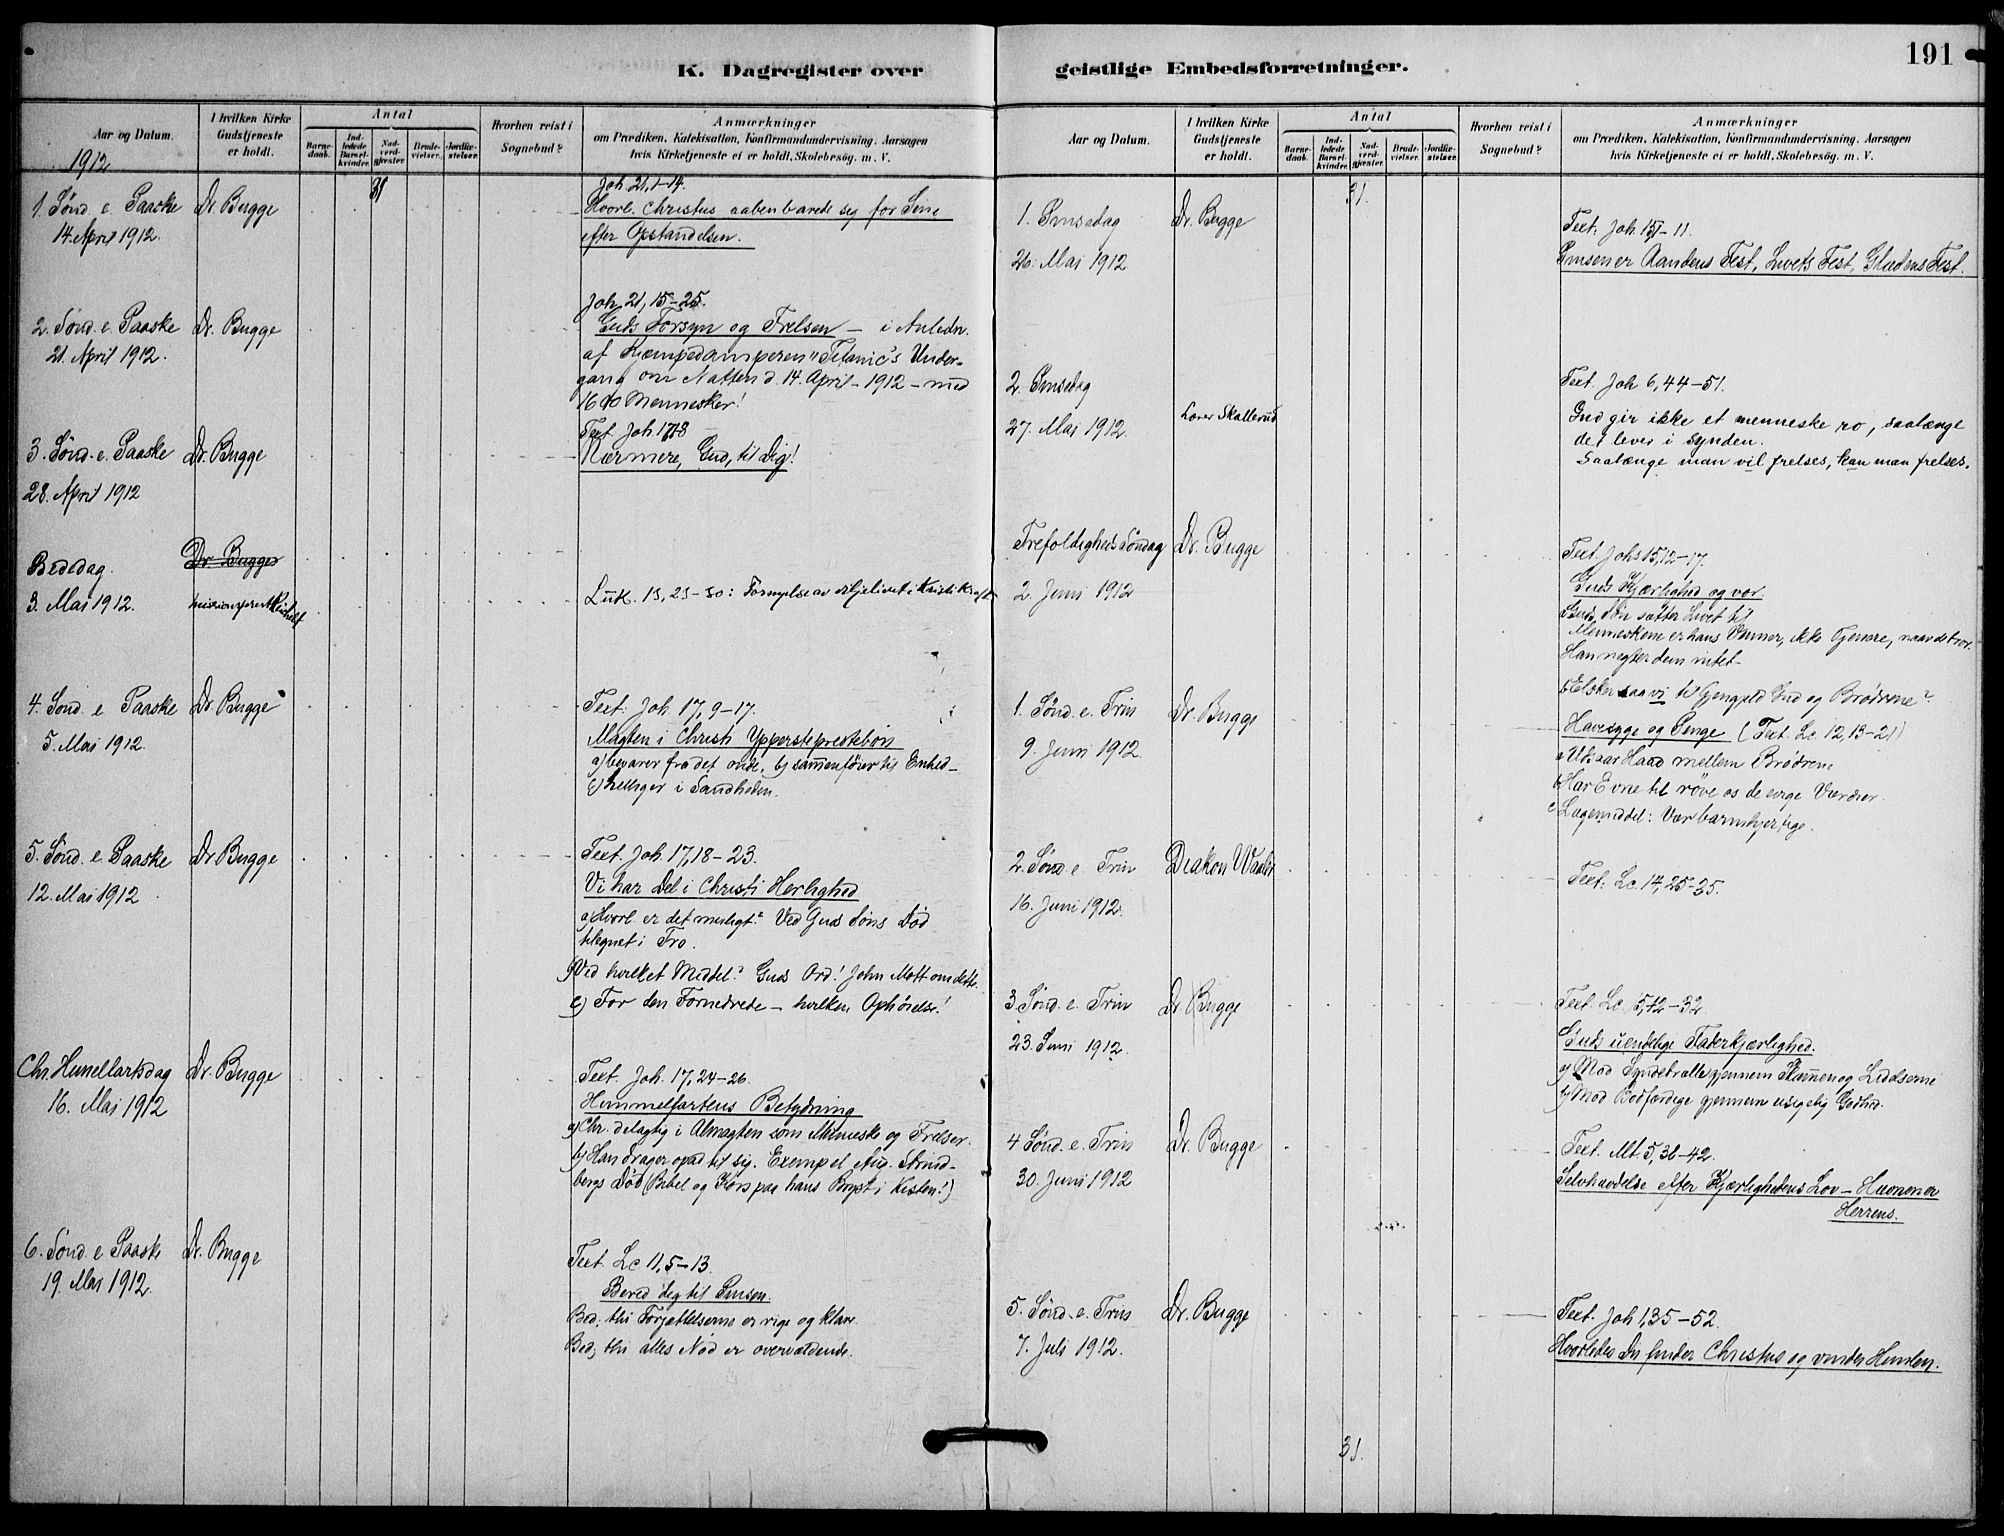 191
K. Dagregister over geistlige Embedsforretninger.
Aar og Datum.
I hvilken Kirke Gudstjeneste er holdt.
Antal
Barne-daab.
Ind-ledede Barsel-kvinder.
Nad-verd-gjester.
Brude-vielser.
Jordfæ-stelser.
Hvorhen reist i Sognebud?
Anmærkninger
om Prædiken, Katekisation, Konfirmandundervisning. Aarsagen
hvis Kirketjeneste ei er holdt. Skolebesøg. m. V.
1912
1. Sønd. e. Paaske Dr. Bugge 31
14. April 1912.
Joh. 21, 1-14.
Hvorl. Christus aabenbarede sig for Sine
efter Opstandelsen.
2. Sønd. e. Paaske Dr. Bugge
21. April 1912.
Joh. 21, 15-25.
Guds Forsyn og Frelsen – i Anledn.
af Kæmpedamperen "Titanic's Under-
gang om Natten d. 14. April - 1912 – med
1600 Mennesker!
3. Sønd. e. Paaske Dr. Bugge
28. April 1912
Text. Joh. 17,1-8
Nærmere, Gud, til Dig!
Bededag. Dr. Bugge
3. Mai 1912. missionsprest Reichelt
Luk. 13, 23-30: Fornyelse av viljelivet i Kristi Kraft
4. Sønd. e. Paaske Dr. Bugge
5. Mai 1912.
Text. Joh. 17, 9-17.
Magten i Christi Ypperstepresstebøn
a) bevarer fra det onde. b) sammenfører til Enhed –
c) helliger i Sandheden.
5. Sønd. e. Paaske Dr. Bugge
12. Mai 1912
Text. Joh. 17, 18-23.
Vi har Del i Christi Herlighed
a) Hvorl. er det muligt? Ved Guds Søns Død
tilegnet i Tro.
b) Ved hvilket Middel? Guds Ord! John Mott om dette.
c) For den Fornedrede – hvilken Ophøielse!
Chr. Himellartsdag Dr. Bugge
16. Mai 1912
Text. Joh. 17, 24-26.
Himmelfartens Betydning
a) Chr. delagtig i Almagten som Menneske og Frelser.
b) Han drager opad til sig. Exempel Aug. Strind-
bergs Død (Bibel og Kors paa hans Bryst i Kisten!)
6. Sønd. e. Paaske Dr. Bugge
19. Mai 1912.
Text. Lc 11, 5-13.
Bered dig til Pinsen.
Bed; thi Forjættelserne er rige og klare
Bed; thi alles Nød er overvældende.
Aar og Datum.
I hvilken Kirke Gudstjeneste er holdt.
Antal
Barne-daab.
Ind-ledede Barsel-kvinder.
Nad-verd-gjester.
Brude-vielser.
Jordfæ-stelser.
Hvorhen reist i Sognebud?
Anmærkninger
om Prædiken, Katekisation, Konfirmandundervisning. Aarsagen
hvis Kirketjeneste ei er holdt. Skolebesøg. m. V.
31.
1. Pinsedag Dr. Bugge
26. Mai 1912
Text. Joh. 15,1-11.
Pinsen er Aandens Fest, Livets Fest, Glædens Fest.
2. Pinsedag
27. Mai 1912. Lærer Skallerud
Text. Joh 6, 44-51.
Gud gir ikke et menneske ro, saalænge
det lever i synden.
Saalænge man vil frelses, kan man frelses.
Trefoldigheds Søndag Dr. Bugge
2. Juni 1912
Text. Joh. 15, 12-17.
Guds Kjærlighed og vor.
a) Guds Søn sætter Livet til
Menneskene er hans Venner, ikke Tjenere, naar de tror.
Han negter dem intet –
b) Elsker saa vi til Gjengjeld Gud og Brødrene?
1. Sønd. e. Trin Dr. Bugge
9. Juni 1912.
Havesyge og Penge (Text. Lc. 12, 13-21)
a) Udsaar Haad mellem Brødrene
b) Har Evne til røve os de evige Værdier.
c) Lægemiddel: Vær barmhjertige.
2. Sønd. e. Trin Diakon Waaler
16. Juni 1912.
Text: Lc. 14, 25-35.
3. Sønd. e. Trin Dr. Bugge
23. Juni 1912.
Text. Lc. 15, 12-32
Guds uendelige Faderkjærlighed.
a) Mod Syndetrælle gjennem Skammen og Lidelserne
b) Mod Bodfærdige gjennem usigelig Godhed.
4 Sønd. e. Trin Dr. Bugge
30. Juni 1912
Text. Mt. 5, 38-42.
Selvhævdelse efter Kjærlighedens Lov – Hævnen er
Herrens.
5. Sønd. e. Trin Dr. Bugge
7. Juli 1912.
Text. Joh 1,35-52.
Hvorledes du finder Christus og vinder Himlen.
31.